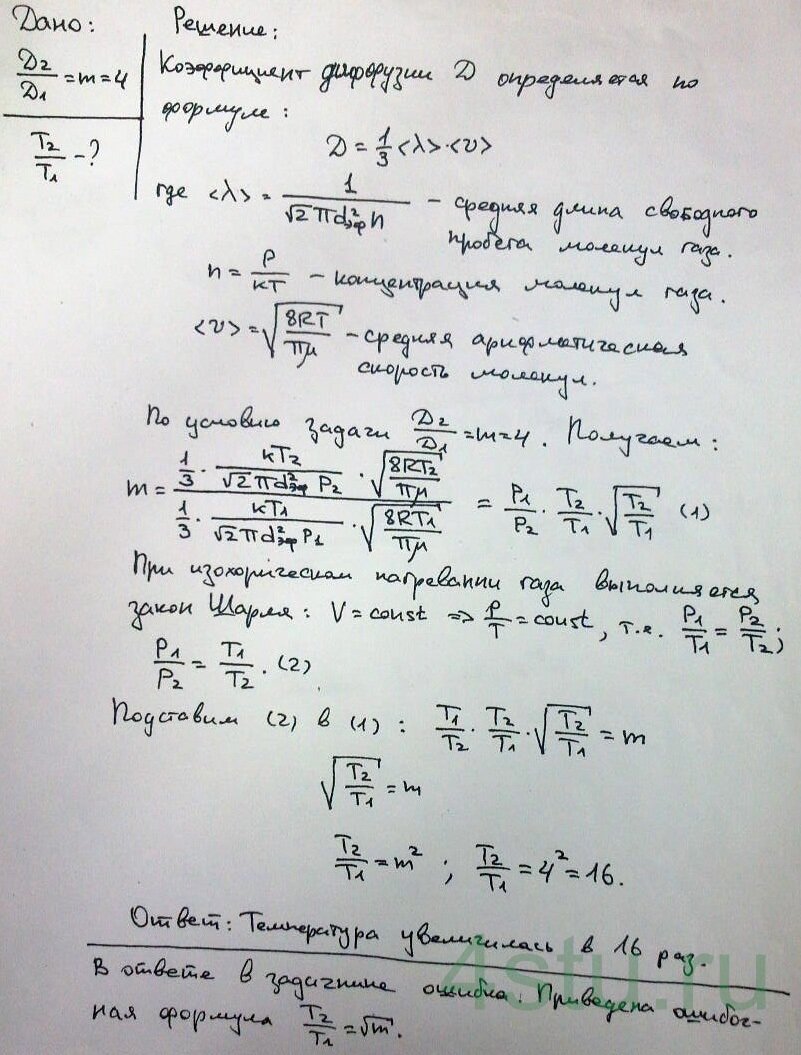 Дано: Решение:
D₂/D₁ = m = 4
T₂/T₁ - ?
Коэффициент диффузии D определяется по
формуле:
D = 1/3 <λ>·<v>
где <λ> = 1/(√2 πd²эф n) - средняя длина свободного
пробега молекул газа.
n = P/кT - концентрация молекул газа.
<v> = √(8RT/πμ) - средняя арифметическая
скорость молекул.
По условию задачи D₂/D₁ = m = 4. Получаем:
m = (1/3 · кT₂/(√2 πd²эф P₂) · √(8RT₂/πμ))/(1/3 · кT₁/(√2 πd²эф P₁) · √(8RT₁/πμ)) = P₁/P₂ · T₂/T₁ · √(T₂/T₁) (1)
При изохорическом нагревании газа выполняется
закон Шарля: V = const => P/T = const, т.е. P₁/T₁ = P₂/T₂;
P₁/P₂ = T₁/T₂. (2)
Подставим (2) в (1): T₁/T₂ · T₂/T₁ · √(T₂/T₁) = m
√(T₂/T₁) = m
T₂/T₁ = m² ; T₂/T₁ = 4² = 16.
Ответ: Температура увеличилась в 16 раз.
В ответе в задачнике ошибка. Приведена ошибоч-
ная формула T₂/T₁ = √m.
4stu.ru